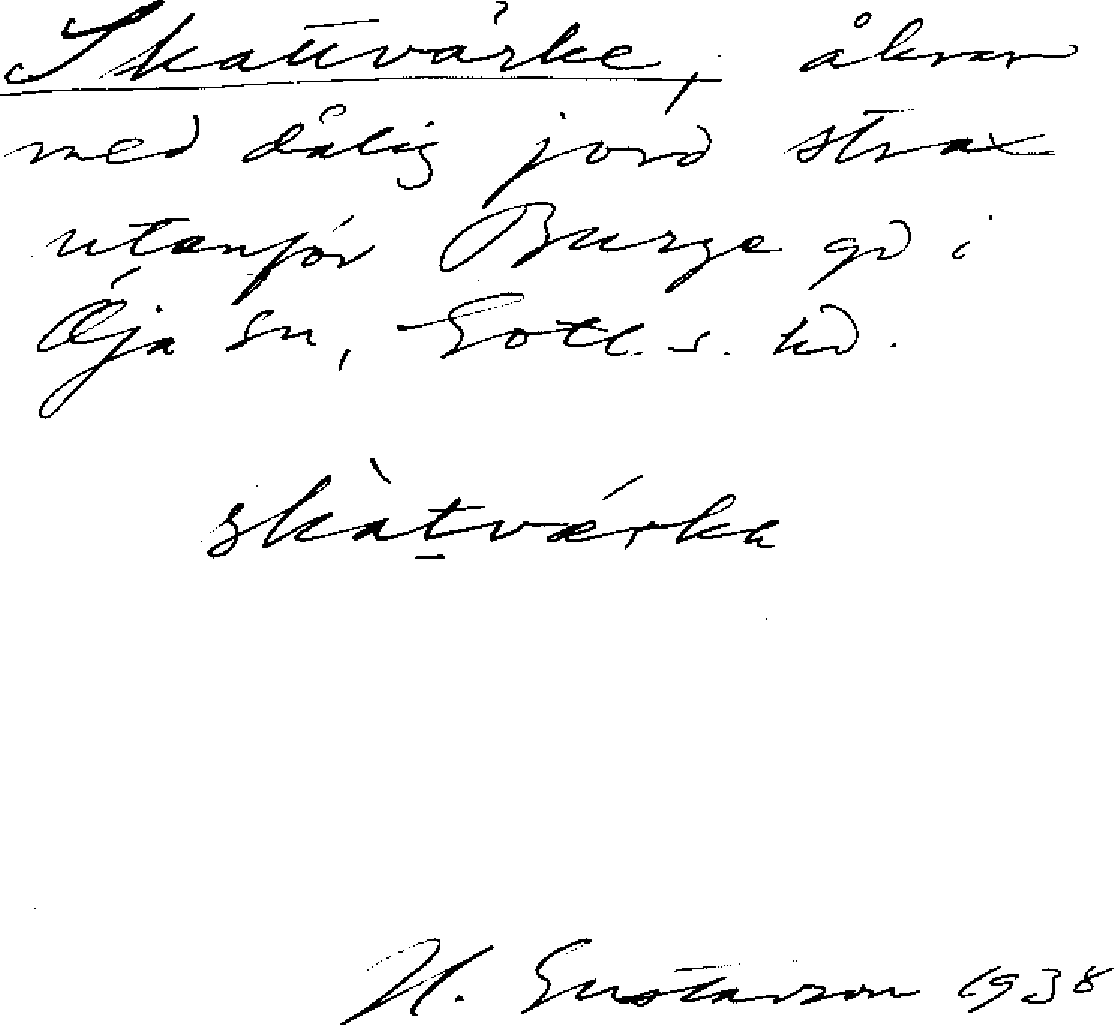 Skattvärke, åkrar
med dålig jord strax
utanför Burge gd i
Öja sn, Gotl. s. hd.
skàt̠vǽrka
H. Gustavson 1938